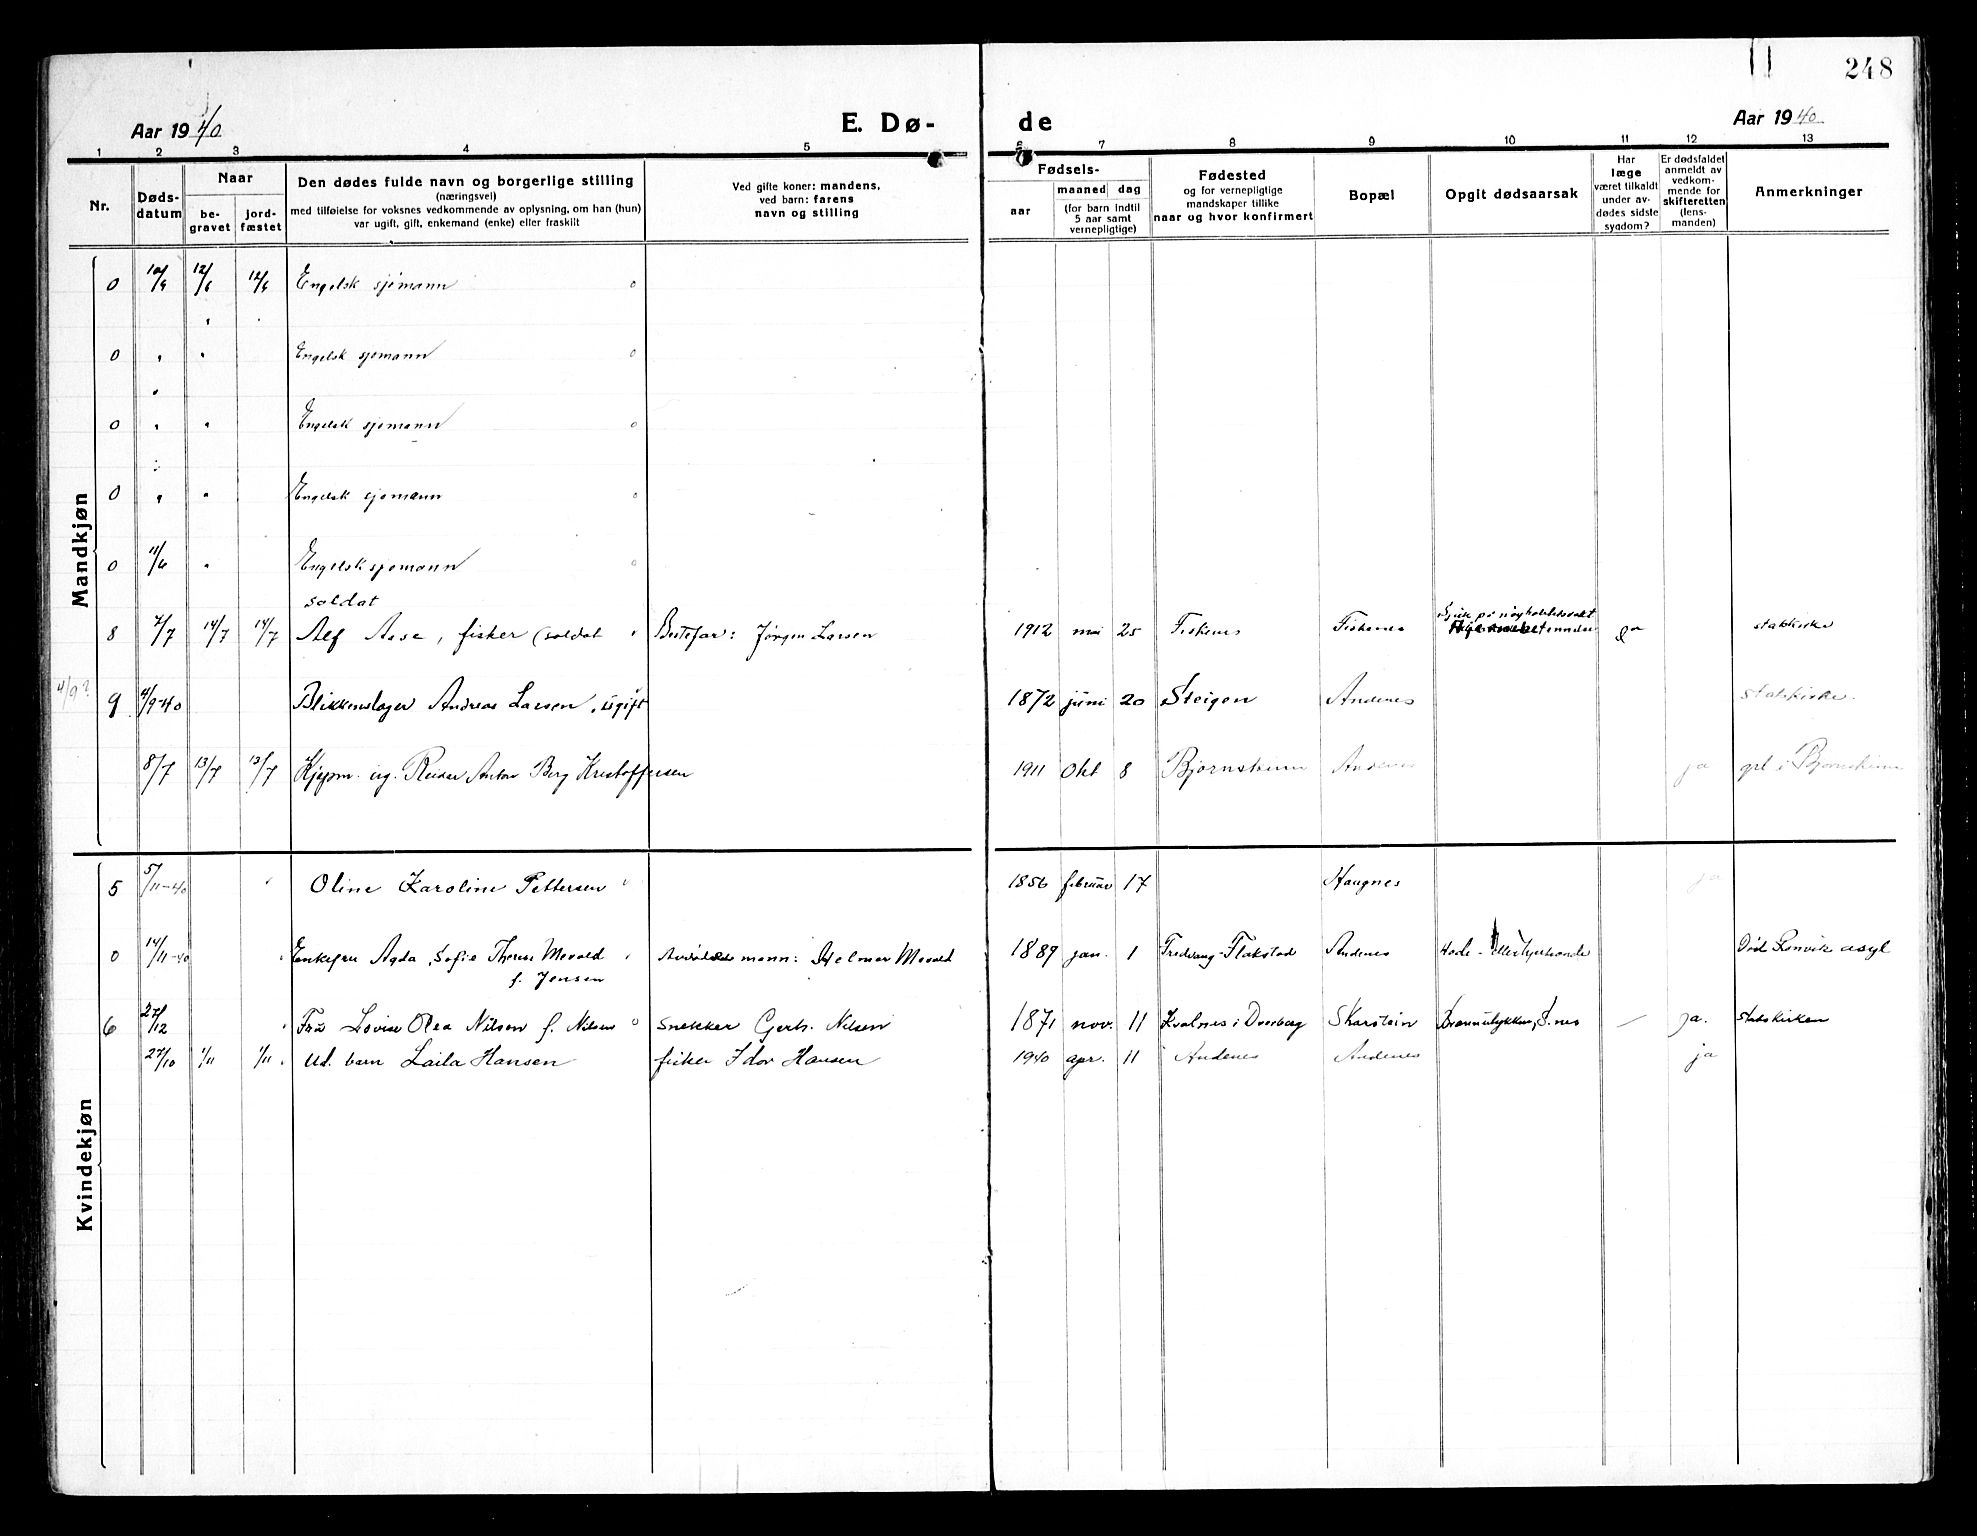 248
Aar 1940
E. Dø-
de
Aar 1940
1 2 3 4 5 6 7 8 9 10 11 12 13
Nr.
Døds-
datum
Naar
be-
gravet
jord-
fæstet
Den dødes fulde navn og borgerlige stilling
(næringsvei)
med tilføielse for voksnes vedkommende av oplysning, om han (hun)
var ugift, gift, enkemand (enke) eller fraskilt
Ved gifte koner: mandens,
ved barn: farens
navn og stilling
Fødsels-
aar
maaned
dag
(for barn indtil
5 aar samt
vernepligtige)
Fødested
og for vernepligtige
mandskaper tillike
naar og hvor konfirmert
Bopæl
Opgit dødsaarsak
Har
læge
været tilkaldt
under av-
dødes sidste
sygdom?
Er dødsfaldet
anmeldt av
vedkom-
mende for
skifteretten
(lens-
manden)
Anmerkninger
Mandkjøn
0 12/6 12/6 Engelsk sjømann
0 " " Engelsk sjømann
0 " " Engelsk sjømann
0 " " Engelsk sjømann
0 11/6 " Engelsk sjømann
soldat
8 7/7 14/7 14/7 Alf Aase, fisker (soldat Bestefar: Jørgen Larsen 1912 mai 25 Fiskenes Fiskenes ja statskirke
4/9?
9 4/9-40 Blikkenslager Andreas Larsen, ugift 1872 juni 20 Steigen Andenes statskirke.
8/7 13/7 13/7 Kjøpm. ug. Reidar Anton Berg Kristoffersen 1911 Okt 8 Bjørnskinn Andenes ja i Bjørnskinn
Kvindekjøn
5 5/11-40 Oline Karoline Pettersen 1856 februar 17 Haugnes ja
0 14/11-40 Enkefru Agda Sofie Therese Mevold mann: Hjelmer Mevold 1889 jan. 1 Fredvang-Flakstad Andenes Død Rønvik asyl
f. Jensen
6 27/12 Fru Lovise Olea Nilsen f. Nilsen Snekker Gerh. Nilsen 1871 nov. 11 Kvalnes i Dverberg Skarstein — ja. Statskirken
27/10 1/11 1/11 Ud. barn Laila Hansen fisker Idor Hansen 1940 apr. 11 Andenes Andenes ja